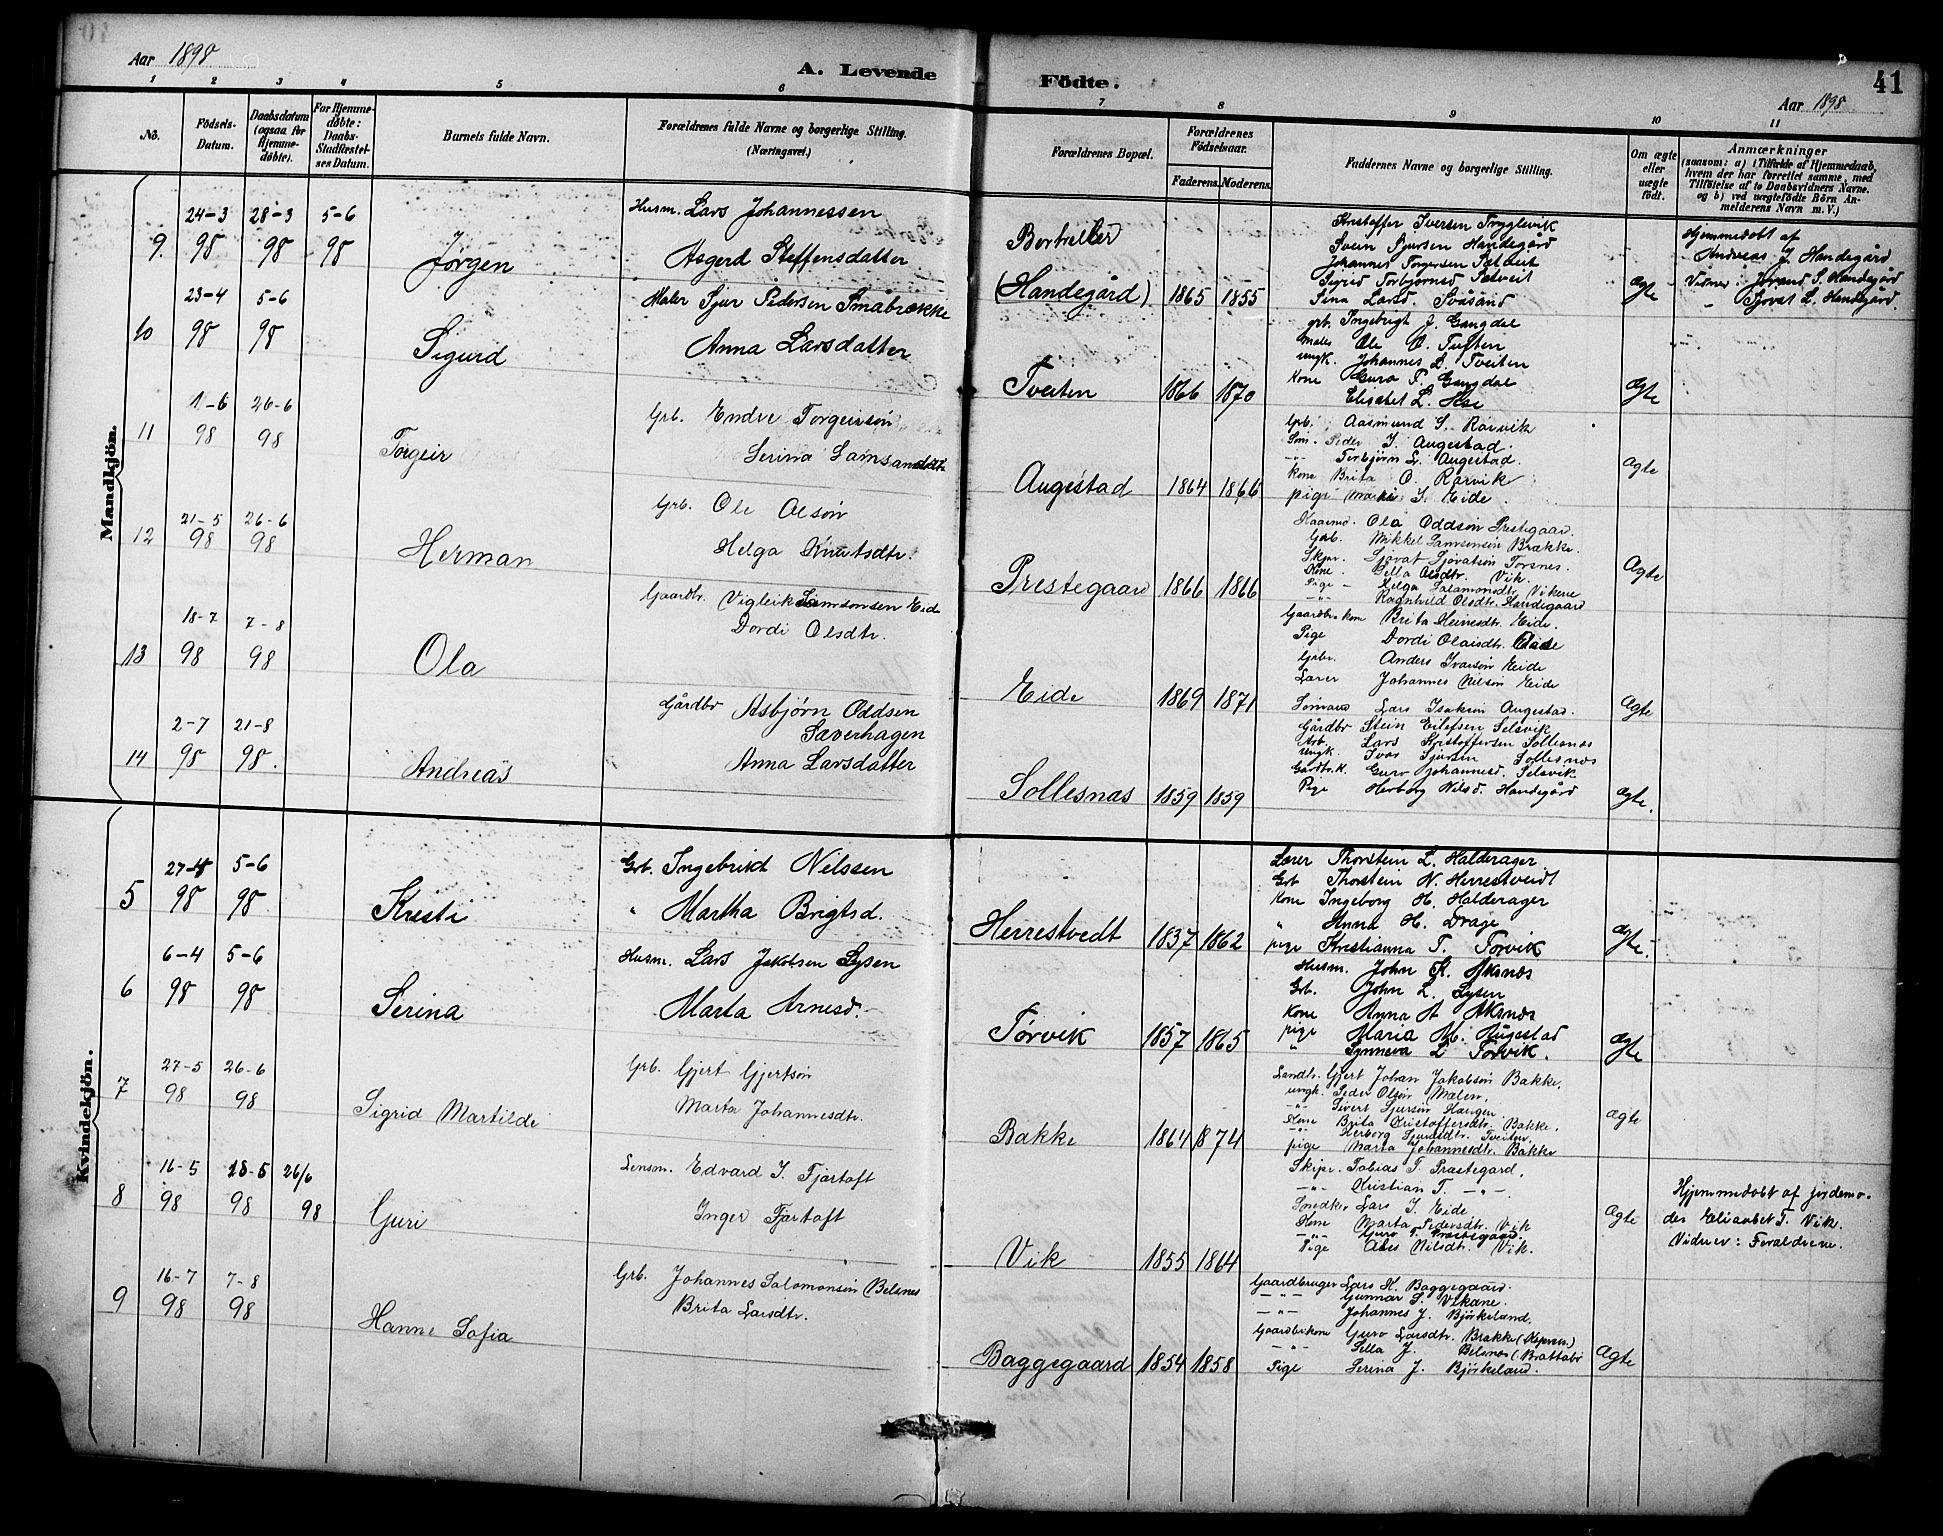 Aar 1898
A. Levende Födte.
41
Aar 1898
1 2 3 4 5 6 7 8 9 10 11
No.
Födsels-Datum.
Daabsdatum (ogsaa for Hjemmedøbte).
For Hjemmedøbte: Daabs-Stadfæstelses Datum.
Barnets fulde Navn.
Forældrenes fulde Navne og borgerlige Stilling. (Næringsvei.)
Forældrenes Bopæl.
Forældrenes Födselsaar.
Faderens. Moderens.
Faddernes Navne og borgerlige Stilling.
Om ægte eller uægte födt.
Anmærkninger
(saasom: a) i Tilfælde af Hjemmedaab, hvem der har forrettet samme, med Tilföielse af to Daabsvidners Navne. og b) ved uægtefödte Börn Anmelderens Navn m. V.)
Mandkjön.
9. 24-3 98 28-3 98 5-6 98
Jørgen
Husm. Lars Johannessen
Asgerd Steffensdatter
(Handegård) 1865 1855
Kristoffer Iversen Trygglevik
Svein Sjursen Handegård
Johannes Torgersen Satveit
Sigrid Torbjørnsd Satveit
Sina Larsd. Svåsand
Ægte
Hjemmedøbt af
Andreas J. Handegård
Vidner: Jørund S. Handegård
" Sjovat L. Handegård.
10 23-4 98 5-6 98
Sigurd
Maler Sjur Pedersen Småbrække
Anna Larsdatter
Tveiten 1866 1870
grb. Ingebrigt J. Gangdal
Maler Ole O. Tveiten
Ungk. Johannes L. Tveiten
Kone Guro P. Gangdal
Elisabet L.
Ægte
11 1-6 98 26-6 98
Torgeir
Grb. Endre Torgeirsøn
Serina Samsonsdtr
Augestad 1864 1866
Grb. Aasmund S. Rørvik
Søn. Peder J. Augestad.
-"- Torbjørn L. Augestad.
Kone Brita O. Rørvik
pige S. Eide.
Ægte
12 21-5 98 26-6 98
Herman
Grb. Ole Olsøn
Helga Knutsdtr.
Prestegaard 1866 1866
Kaarmd. Ola Oddsøn Prestegaard.
Grb. Mikkel Samsonsøn Brække.
Skpr. Sjovat Sjovatsøn Torsnes.
Kone. Sella Olsdtr. Vik.
Pige - Helga Salamonsdtr. Vikene
-"- Ragnhild Olsdtr. Handegaard
Ægte
13 18-7 98 7-8 98
Ola
Gaardbr. Vigleik Samsonsen Eide
Dordi Olsdtr.
Eide 1869 1871
Gaardbr. kone Brita Heinesdtr. Eide.
Pige Dordi Olaisdtr. Eide
Grbr. Anders Ivarsøn Eide
Lærer Johannes Nilsøn Eide
Sømand Lars Isaksøn Augestad.
Ægte
14 2-7 98 21-8 98.
Andreas
Gårdbr Asbjørn Oddsen
Sæverhagen
Anna Larsdatter
Sollesnæs 1859 1859
Gårdbr Stein Eilefsen Selsvik
Arb. Lars Kristoffersen Sollesnæs
Ungk. Ivar Sjursen Sollesnæs
Gårdbr.K. Guro Johannesd. Selsvik
Pige Herborg Nilsd. Handegård
Ægte.
Kvindekjön.
5 27-4 98 5-6 98
Kristi
Grb. Ingebrikt Nilssen
" Martha Brigtsd.
Herrestvedt 1837 1862
Lærer Thorstein L. Halderager
Grb Thorstein N. Herrestveidt
Kone Ingeborg H. Halderager
" Anna H. Drage
pige Kristianna T. Tørvik
Ægte.
6 6-4 98 5-6 98
Serina
Husm. Lars Jakobsen Lysen
Marta Arnesd.
Tørvik 1857 1865
Husm. John K. Aksnæs
Grb. John L. Lysen
Kone Anna A Aksnæs
pige Maria M. Augestad
" Synneva L Tørvik.
Ægte
7 27-5 98 26-6 98
Sigrid Martilde
Grb. Gjert Gjertsøn
Marta Johannesdtr.
Bakke 1864 1874
Landh. Gjert Johan Jakobsøn Bakke.
Ungk. Peder Olsøn Malen.
-"- Sivert Sjursøn Haugen.
Kone Brita Kristoffersdtr. Bakke.
-"- Herborg Sjursdtr. Tveiten.
pige Marta Johannesdtr. Bakke
Ægte
8 16-5 98 18-5 98 26/6 98
Guri
Lensm. Edvard I. Fjærtoft
Inger Fjærtoft
Vik 1855 1864
Skipr. Tobias T. Præstegard.
-"- Kristian T. -"-.
Lars J. Eide
Kone Marta Pedersdtr. Vik
-"- Guro T. Præstegaard.
Pige Nilsdtr. Vik.
Ægte
Hjemmedøbt af jordemoder Elisabet T. Vik.
Vidner: Forældrene.
9 16-7 98 7-8 98
Hanne Sofia
Grb. Johannes Salomonsøn Belsnes
Brita Larsdtr.
Baggegaard 1854 1858
Gaardbruger Lars H. Baggegaard.
-"- Gunnar S. Vikane.
-"- Johannes J. Björkeland.
Gaardbr.kone Guro Larsdtr. Brække
-"- Sella J. Belsnes (Brattabø
Pige Serina J. Björkeland.
Ægte